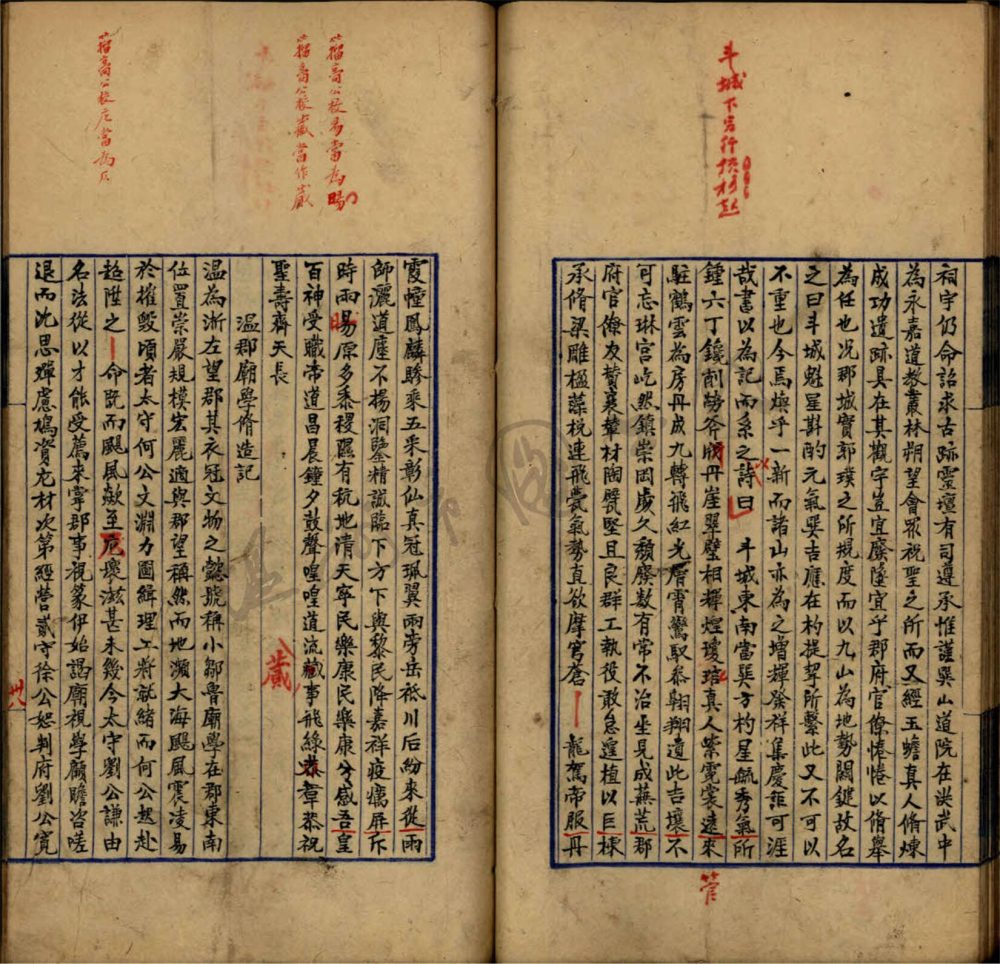 祠宇仍命詔求古跡靈壇有司遵承惟謹巽山道院在洪武中
為永嘉道教叢林朔望會眾祝聖之所而又經玉蟾真人脩煉
成功遺跡具在其觀宇豈宜廢墜宜乎郡府官僚惓惓以脩舉
為任也况郡城實郭璞之所規度而以九山為地勢關鍵故名
之曰斗城魁星斟酌元氣巽吉應在杓提挈所繫此又不可以
不重也今焉煥乎一新而諸山亦為之增輝發祥集慶詎可涯
哉書以為記而系之詩曰 斗城東南當巽方杓星毓秀氣所
鍾六丁鑱削勞斧 丹崖翠壁相輝煌瓊琯真人紫霓裳遠來
駐鶴雲為房丹成九轉飛紅光層霄鸞馭恭翱翔遺此吉壤不
可忘琳宫屹然鎮崇岡歲久頹廢數有常不治坐見成蕪荒郡
府官僚友贊襄輦材陶甓堅且良群工執役敢怠遑植以巨棟
承脩梁雕楹藻梲連飛甍氣勢直欲摩穹蒼 龍駕帝服丹
斗城下另行
菅
霞幢鳳麟驂乘五采彰仙真冠珮翼兩旁岳祗川后紛來從雨
師灑道塵不揚洞鑒精誠臨下方下與黎民降嘉祥疫癘屏斥
時雨暘原多黍稷隰有秔地清天寧民樂康民樂康兮感吾皇
百神受職帝道昌晨鐘夕鼓聲喤喤道流蕆事飛綠章羣恭祝
聖壽齊天長
温郡廟學脩造記
温為浙左望郡其衣冠文物之懿號稱小鄒魯廟學在郡東南
位置崇嚴規模宏麗適與郡望稱然而地瀕大海颶風震凌易
於摧毁頃者太守何公文淵力圖緝理工將就緒而何公趨赴
超陞之 命既而颶風欻至戹壞滋甚未幾今太守劉公謙由
名法從以才能受薦來寧郡事視篆伊始謁廟視學顧瞻咨嗟
退而沈思殫慮鳩資尤材次第經營貳守徐公恕判府劉公寛
籀廎公校易當為暘
籀廎公校 當作蕆
籀廎公校 當為
蕆
卅八